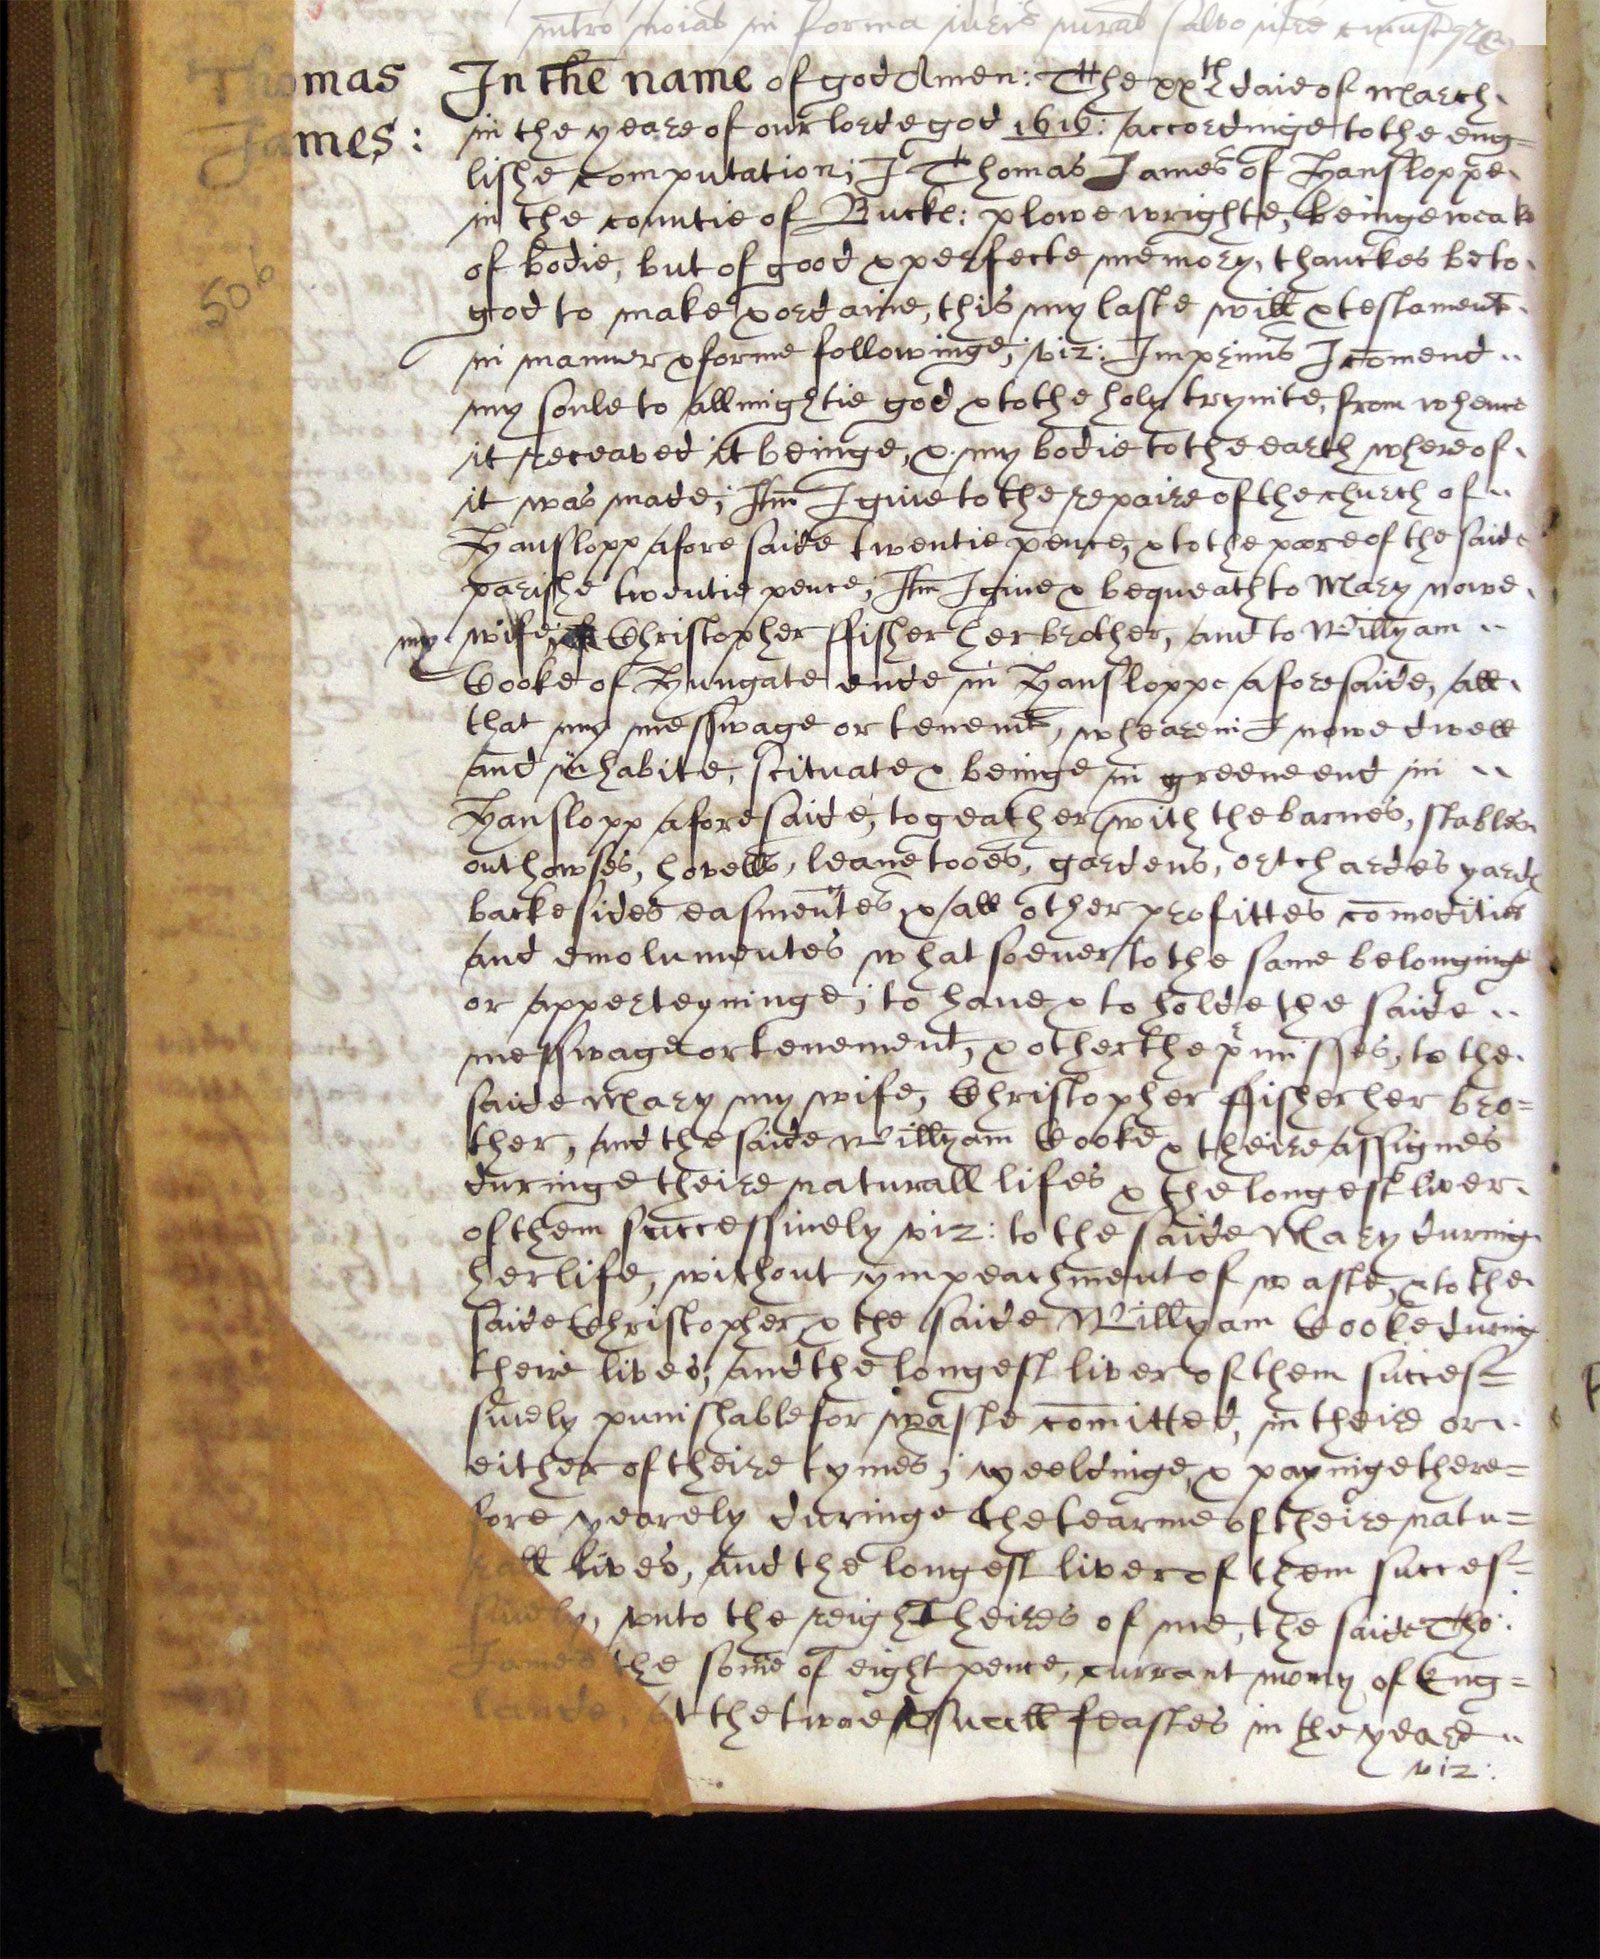 in forma iuris iurat salvo iure cuiuscunque
Thomas
James:
50.6
In the name of god Amen: The xxth daie of March
in the yeare of our lorde god 1616: accordinge to the eng=
lishe computation; I Thomas James of Hansloppe
in the countie of Buck: plowewrighte, beinge weake
of bodie, but of good & perfecte memory, thanckes be to
god to make & ordaine, this my laste will & testament
in manner & forme followinge, viz: Imprimis I comend
my soule to allmightie god & to the holy trynite, from whence
it receaved it beinge, & my bodie to the earth whereof
it was made; Itm I give to the repaire of the church of
Hanslopp afore saide twentie pence, & to the poore of the saide
parishe twentie pence; Itm I give & bequeath to Mary nowe
my wife, Christopher ffisher her brother, and to Willyam
Cooke of Hungate ende in Hansloppe aforesaide, all
that my messwage or tenemt, whearein I nowe dwell
and inhabite, scituate & beinge in greene end in
Hanslopp aforesaide, togeather with the barnes, stables
outhowses, hovells, leanetooes, gardens, ortchardes yards
backesides easmentes & all other profittes comodities
and emolumentes whatsoever to the same belonginge
or apperteyninge; to have & to holde the saide
messwage or tenement, & other the pmisses, to the
saide Mary my wife, Christopher ffisher her bro=
ther, and the saide Willyam Cooke & theire assignes
duringe theire naturall lifes & the longest liver
of them successively viz: to the saide Mary during
her life, without ympeachment of waste, & to the
saide Christopher & the saide Willyam Cooke during
theire lives, and the longest liver of them succes=
sively punishable for waste comitted, in theire or
either of theire tymes; yeeldinge & payinge there=
fore yearely duringe the tearme of theire natu=
rall lives, and the longest liver of them succes=
sively, vnto the reight heires of me, the saide Tho:
James the some of eight pence, currant mony of Eng=
lande, at the twoe vsuall feastes in the yeare
viz: